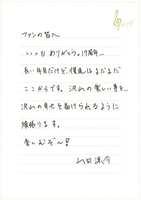 ファンの皆へ
いつも ありがとう。17周年…
長い年月だけど、僕達はまだまだ
ここからです。沢山の楽しい事を
沢山の幸せを届けられるように
頑張ります。
楽しもぜ〜!
山田涼介